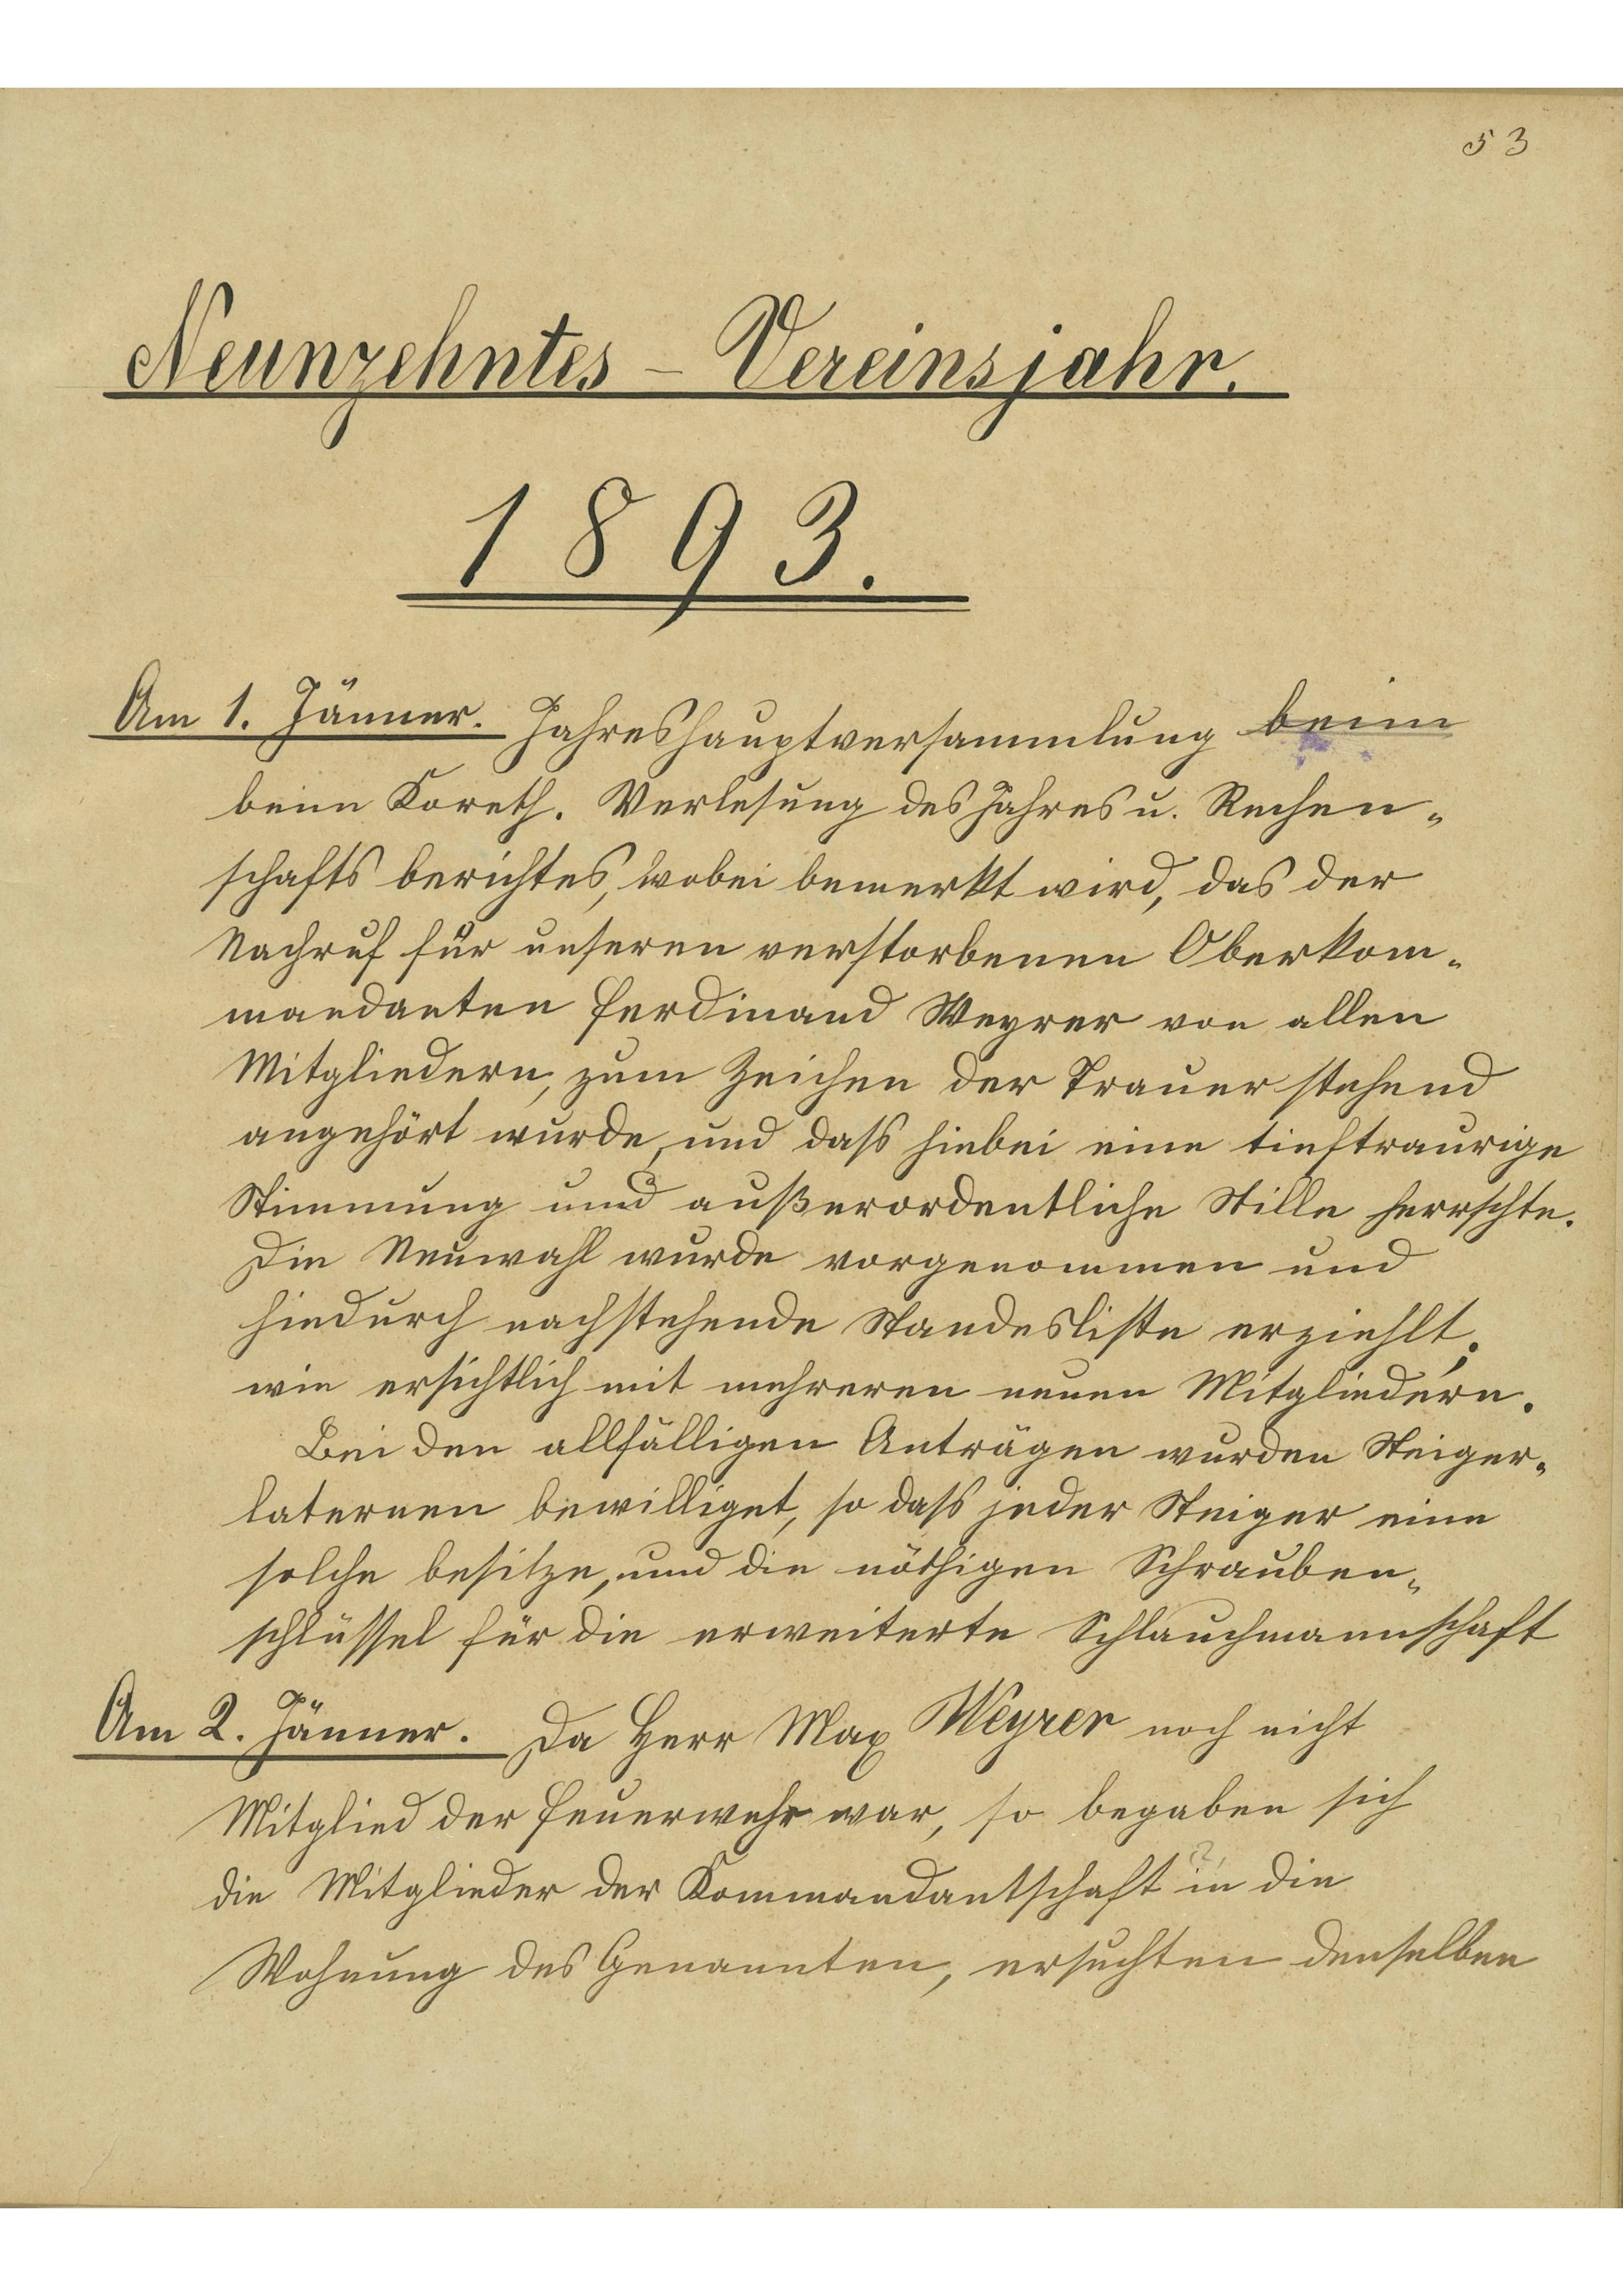 53
Neunzehntes - Vereinsjahr.
1893.
Am 1. Jänner. Jahreshauptversammlung beim
beim Koreth. Verlesung des Jahres u. Rechen-
schafts berichtes, wobei bemerkt wird, das der
Nachruf für unseren verstorbenen Oberkom-
mandanten Ferdinand Weyrer von allen
Mitgliedern, zum Zeichen der Trauer stehend
angehört wurde, und dass hiebei eine tieftraurige
Stimmung und außerordentliche Stille herrschte.
Die Neuwahl wurde vorgenommen und
hiedurch nachstehende Standesliste erziehlt;
wie ersichtlich mit mehreren neuen Mitgliedern.
Bei den allfälligen Anträgen wurden Steiger-
laternen bewilliget, so dass jeder Steiger eine
solche besitze, und die nöthigen Schrauben-
schlüssel für die erweiterte Schlauchmannschaft
Am 2. Jänner. Da Herr Max Weyrer noch nicht
Mitglied der Feuerwehr war, so begaben sich
die Mitglieder der Kommandantschaft in die
Wohnung des Genannten, ersuchten denselben